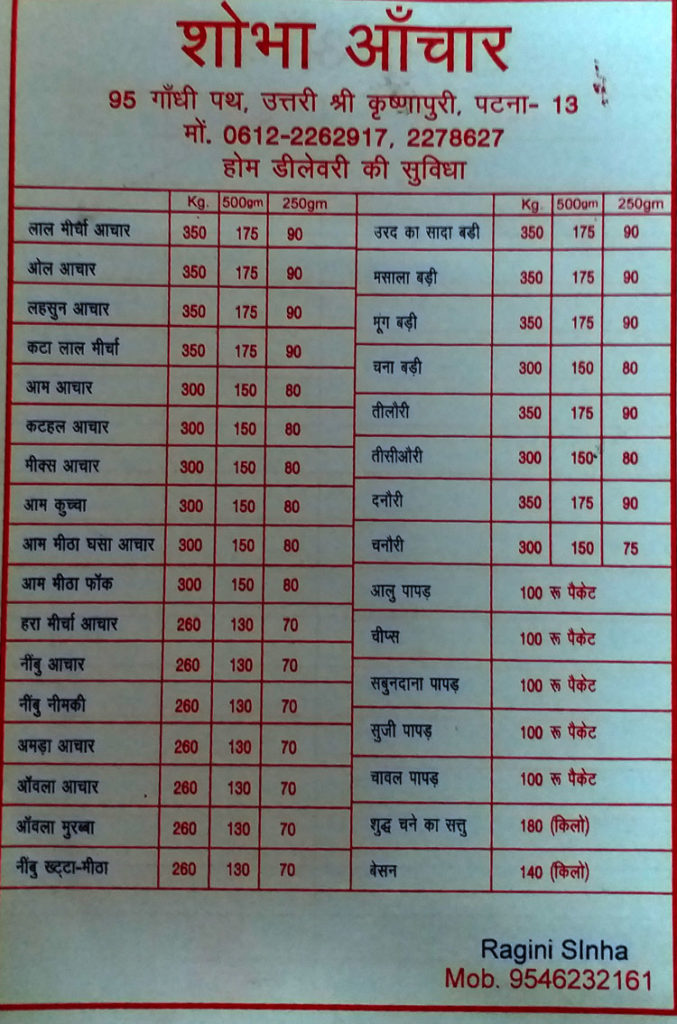 शोभा आँचार
95 गाँधी पथ, उत्तरी श्री कृष्णापुरी, पटना- 13
मों. 0612-2262917, 2278627
होम डीलेवरी की सुविधा
Kg. 500gm 250gm
लाल मीर्चा आचार 350 175 90
ओल आचार 350 175 90
लहसुन आचार 350 175 90
कटा लाल मीर्चा 350 175 90
आम आचार 300 150 80
कटहल आचार 300 150 80
मीक्स आचार 300 150 80
आम कुच्चा 300 150 80
आम मीठा घसा आचार 300 150 80
आम मीठा फॉक 300 150 80
हरा मीर्चा आचार 260 130 70
नींबु आचार 260 130 70
नींबु नीमकी 260 130 70
अमड़ा आचार 260 130 70
ऑवला आचार 260 130 70
ऑवला मुरब्बा 260 130 70
नींबु ख्ट्टा-मीठा 260 130 70
Kg. 500gm 250gm
उरद का सादा बड़ी 350 175 90
मसाला बड़ी 350 175 90
मूंग बड़ी 350 175 90
चना बड़ी 300 150 80
तीलौरी 350 175 90
तीसीऔरी 300 150 80
दनौरी 350 175 90
चनौरी 300 150 75
आलु पापड़ 100 रू पैकेट
चीप्स 100 रू पैकेट
सबुनदाना पापड़ 100 रू पैकेट
सुजी पापड़ 100 रू पैकेट
चावल पापड़ 100 रू पैकेट
शुद्ध चने का सत्तु 180 (किलो)
बेसन 140 (किलो)
Ragini SInha
Mob. 9546232161